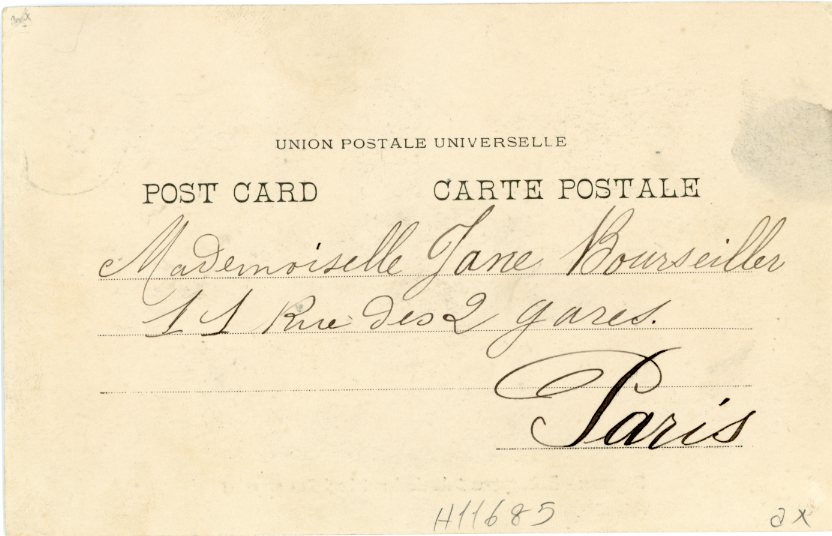 UNION POSTALE UNIVERSELLE
POST CARD CARTE POSTALE
Mademoiselle Jane Bourseiller
11 Rue des 2 gares.
Paris
H11685
ax